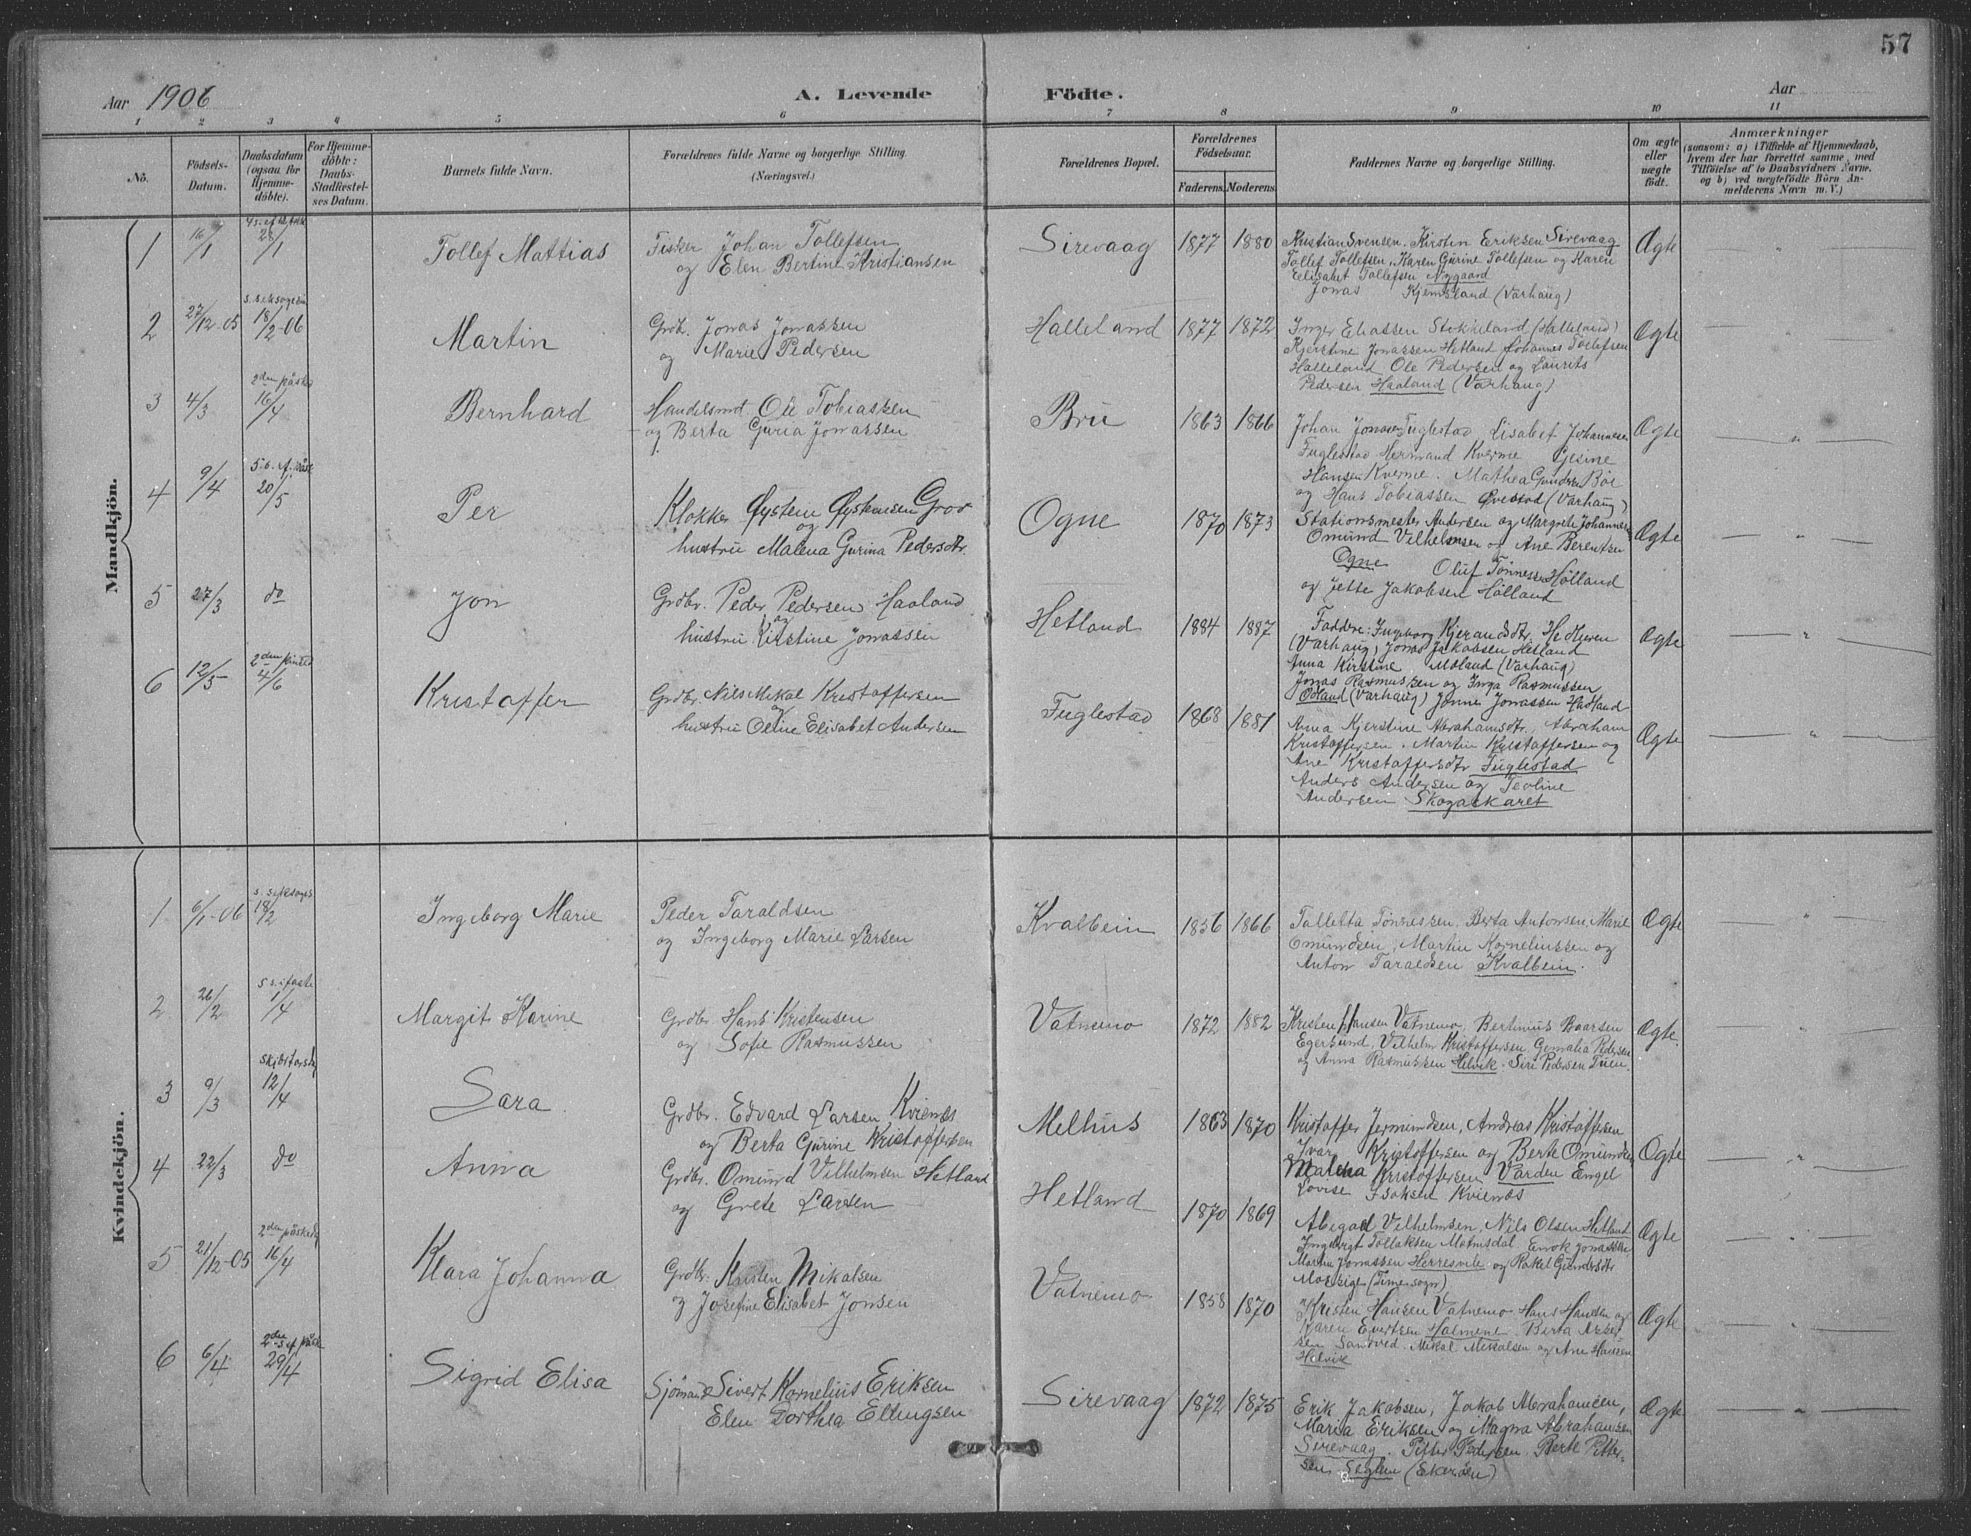 57
Aar 1906
A. Levende Födte.
Aar
1 2 3 4 5 6 7 8 9 10 11
No.
Födsels-Datum.
Daabsdatum (ogsaa for Hjemme-döbte).
For Hjemme-döbte: Daabs-Stadfæstel-ses Datum.
Barnets fulde Navn.
Forældrenes fulde Navne og borgerlige Stilling. (Næringsvei.)
Forældrenes Bopæl.
Forældrenes Födselsaar.
Faderens. Moderens.
Faddernes Navne og borgerlige Stilling.
Om ægte eller uægte födt.
Anmærkninger
(saasom: a) i Tilfælde af Hjemmedaab, hvem der har forrettet samme, med Tilföielse af to Daabsvidners Navne. og b) ved uægtefödte Börn An-melderens Navn m. V.)
Mandkjön.
1 16/1 28/1 Tollef Mattias
Fisker Johan Tollefsen
og Elen Bertine Kristiansen
Sirevaag 1877 1880
Kristian Svensen. Kirstin Eriksen Sirevaag
Tollef Tollefsen, Karen Gurine Tollefsen og Karen
Elisabet Tollefsen Nygaard
Ægte
2 27/12-05 18/2-06 Martin
Grdbr. Jonas Jonassen
og Marie Pedersen
Halleland 1877 1872
Jonas Kjemsland (Varhaug)
Inger Eliassen Stokkeland (Halleland)
Kjerstine Jonassen Hetland Johannes Tollefsen
Halleland Ole Pedersen og Laurits
Pedersen Haaland (Varhaug)
Ægte
3 4/3 2den påske 16/4 Bernhard
Handelsmd. Ole Tobiassen
og Berta Guria Jonassen
Bru 1863 1866
Johan Jonassen Fuglestad Lisabet Johannesen
Fuglestad Hermand Kverme Gesine
Hansen Kverme. Mathea Gundersen Böe
og Hans Tobiassen (Varhaug)
Ægte
4 9/4 20/5 Per
Klokker Öysten Öystensen Grov
og
hustru Malena Gurina Pedersdtr.
Ogne 1870 1873
Stationsmester Andersen og Margrete Johannesen
Omund Vilhelmsen og Ane Berentsen
Ogne Oluf Tönnessen Hölland
og Jette Jakobsen Hölland
Ægte
5 27/3 do Jon
Grdbr. Peder Pedersen Haaland
og
hustru Kirstine Jonassen
Hetland 1884 1887
Faddere: Ingeborg Kjerandsdtr.
(Varhaug) Jonas Jakobsen Hetland
Anna Kirstine Möland (Varhaug)
Jonas Rasmussen og Inga Rasmussen
Ödland (Varhaug) Jonne Jonassen Haaland
Ægte
6 12/5 2den pinsed 4/6 Kristoffer
Grdbr. Nils Mikal Kristoffersen
og
hustru Oline Elisabet Andersen
Fuglestad 1868 1881
Anna Kjerstine Abrahamsdtr. Abraham
Kristoffersen. Martin Kristoffersen og
Ane Kristoffersdtr Fuglestad
Anders Andersen og Teoline
Andersen Skogaskaret
Ægte
Kvindekjön.
1 6/1-06 18/2 Ingeborg Marie
Peder Taraldsen
og Ingeborg Marie Larsen
Kvalbein 1856 1866
Talletta Tönnessen. Berta Antonsen, Marie
Omundsen, Martin Korneliussen og
Anton Taraldsen Kvalbein.
Ægte
2 26/2 5 s. i faste 1/4 Margit Karine
Grdbr. Hans Kristensen
og Sofie Rasmussen
Vatnemo 1872 1882
Kristen Hansen Vatnemo, Bertinius Baarsen
Egersund, Vilhelm Kristoffersen, Pedersen
og Anna Rasmussen Helvik. Siri Pedersen
Ægte.
3 9/3 Skjærtorsdag 12/4 Sara
Grdbr. Edvard Larsen Kvienes
og Berta Gurine Kristoffersen
Melhus 1863 1870
Kristoffer Jermundsen, Andreas Kristoffersen
Ivar Kristoffersen og Berte Omundsen
Malena Kristoffersen Varden Engel
Lovise Isaksen Kvienes
Ægte
4 22/3 do Anna
Grdbr. Omund Vilhelmsen Hetland
og Grete Larsen
Hetland 1870 1869
Abigael Vilhelmsen, Nils Olsen Hetland
Tollaksen Malmsdal Enok Jonassen
Martin Jonassen Herresvile og Rakel Gundersdtr
Mossige (Time sogn)
Ægte
5 21/12-05 2den påskedag 16/4 Klara Johanna
Grdbr. Kristen Mikalsen
og Josefine Elisabet Jonsen
Vatnemo 1858 1870
Kristen Hansen Vatnemo Hans Hansen og
Karen Evertsen Holmene. Berta
Sandved. Mikal Mikalsen og Ane Hansen
Helvik
Ægte
6 6/4 2den s. ef. påske 29/4 Sigrid Elisa
Sjömand Sivert Kornelius Eriksen
Elen Dorthea Ellingsen
Sirevaag 1872 1875
Erik Jakobsen, Jakob Abrahamsen,
Maria Eriksen og Magna Abrahamsen
Sirevaag. Pitter Pedersen. Berte Pitter-
sen Seglen (Ekersöen)
Ægte